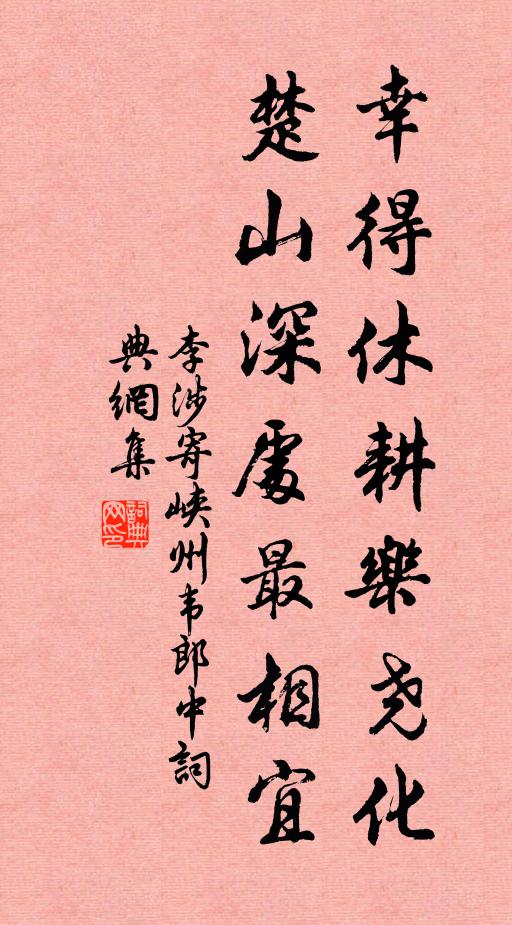 幸得休耕樂尧化
楚山深處最相宜
李涉寄峡州韦郎中詞
典網集
詞典网印